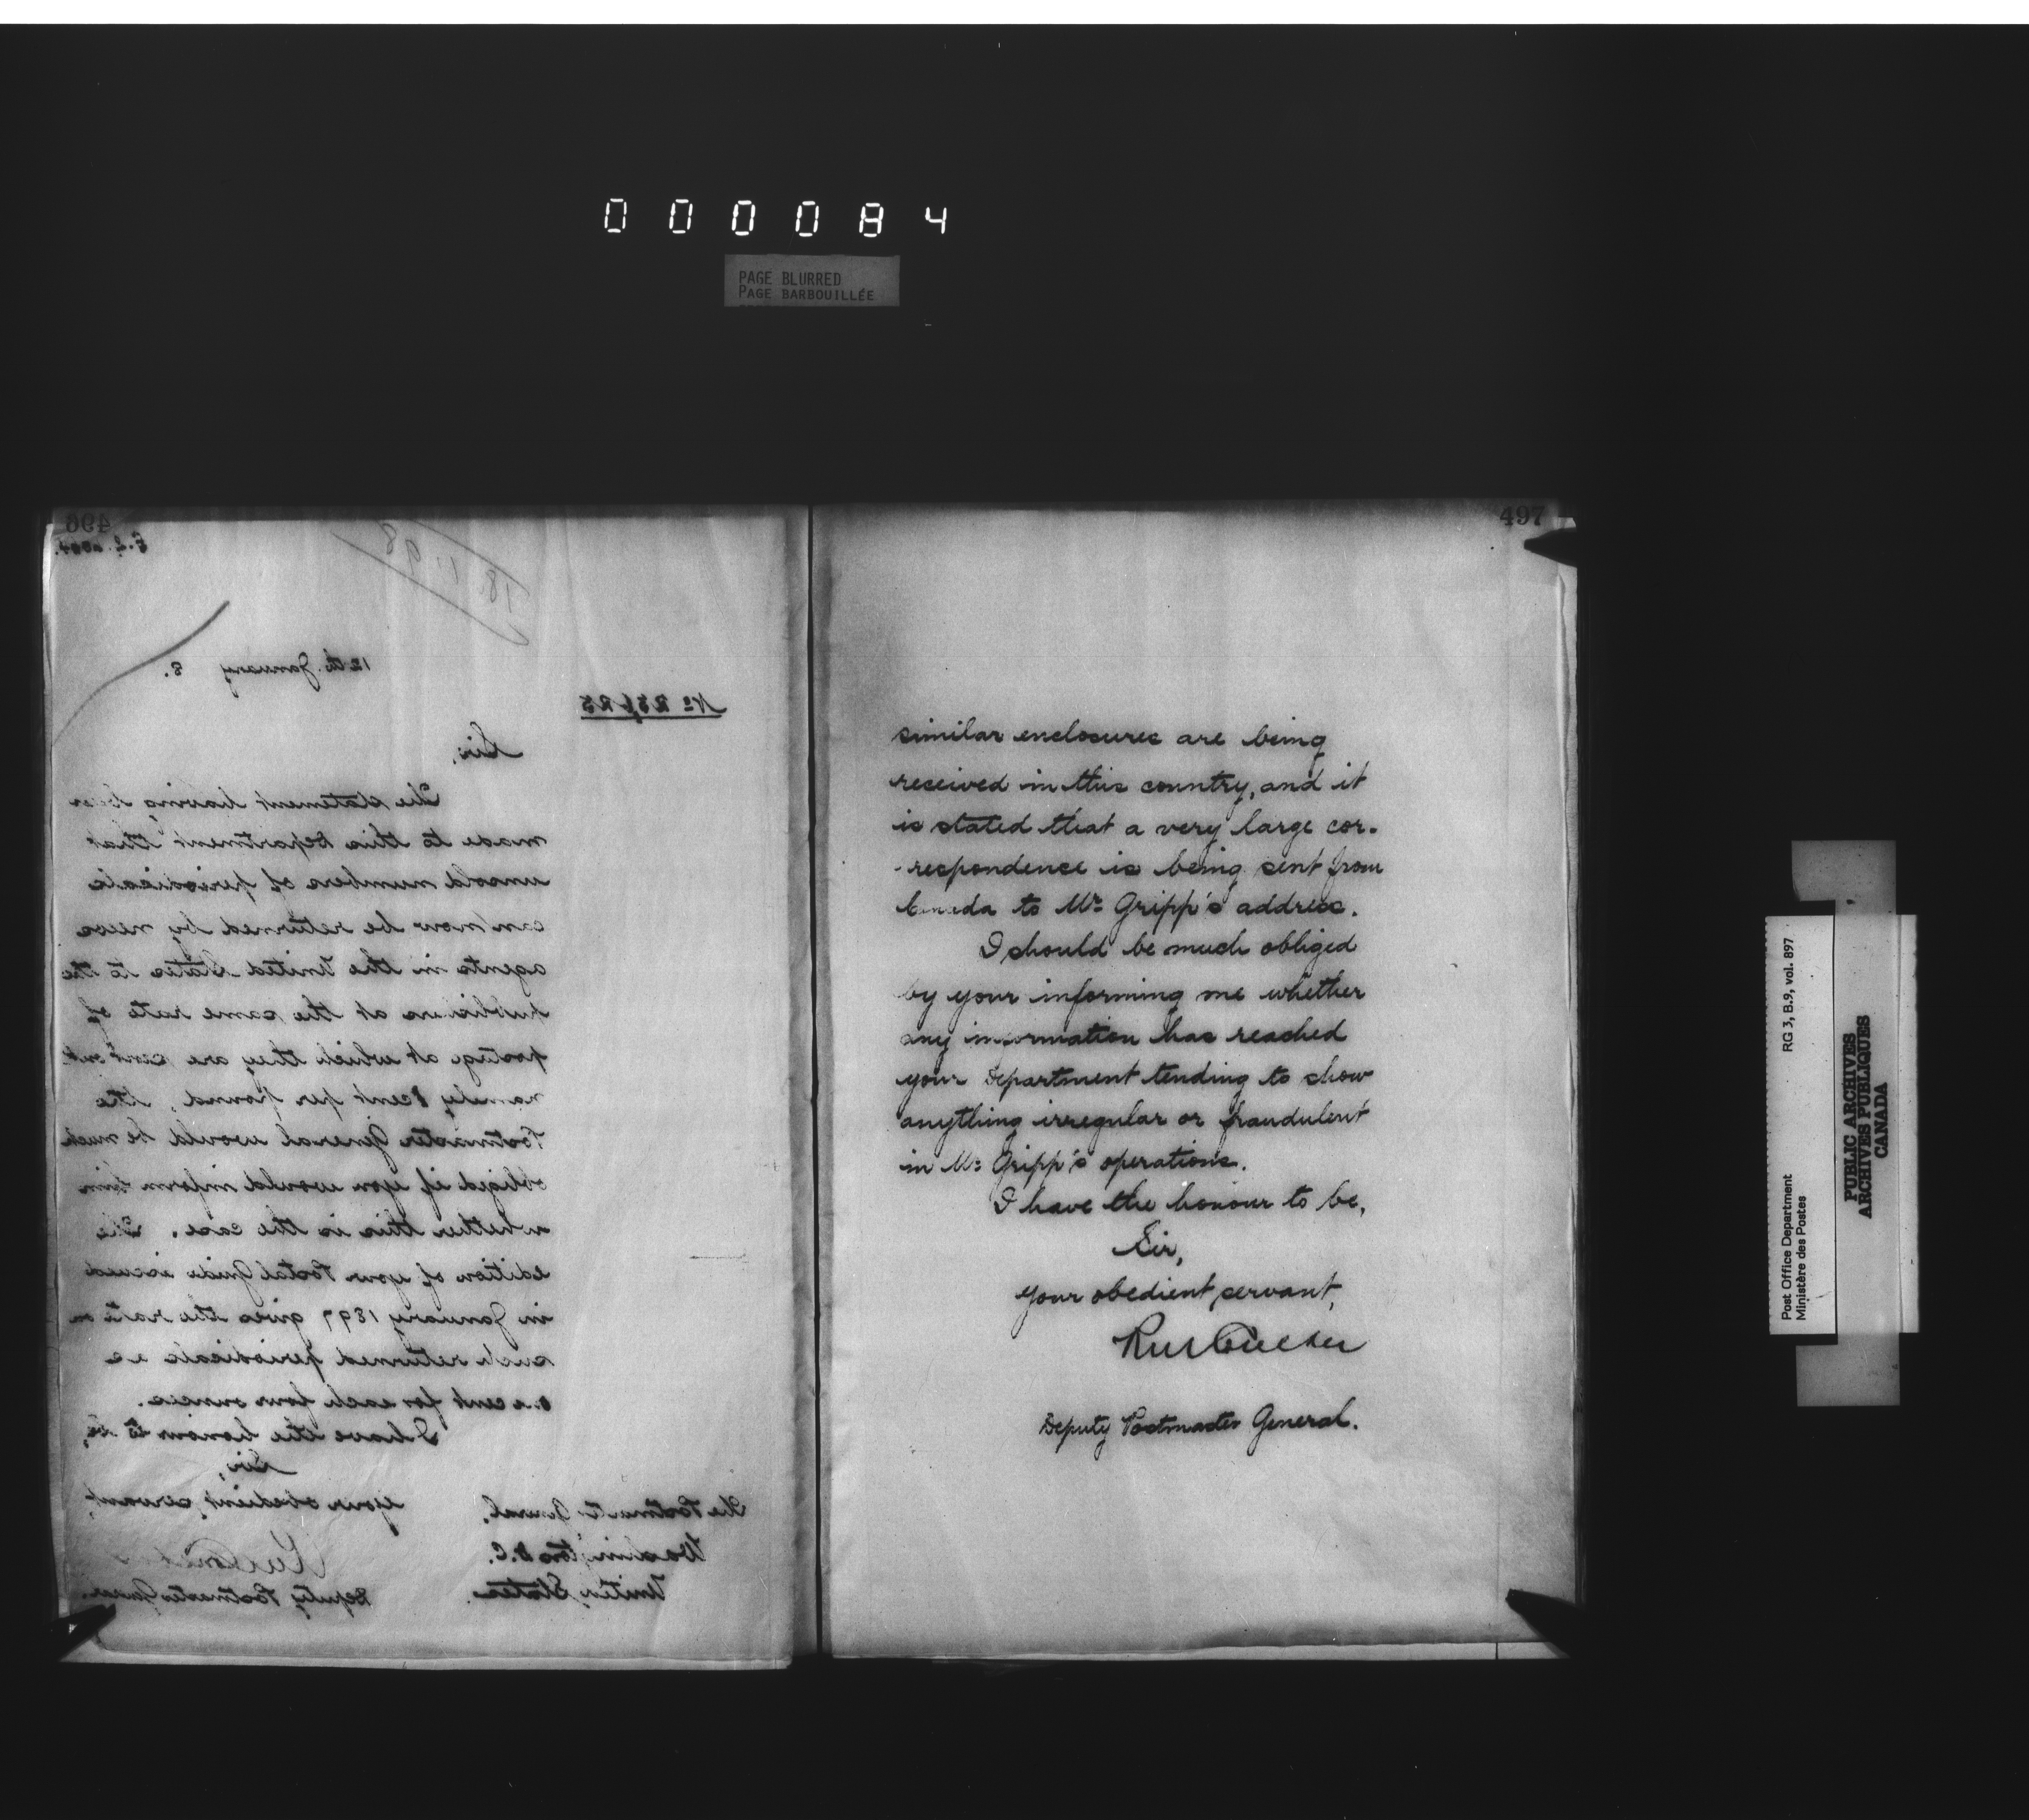 0 0 0 0 8 4
PAGE BLURRED
PAGE BARBOUILLÉE
496
18 1 98
12th January 8.
Sir,
The statement having been
made to this Department that
unsold numbers of periodicals
can now be returned by news
agents in the United States to the
publishers at the same rate of
postage at which they are sent out
namely 1 cent per pound, the
Postmaster General would be much
obliged if you would inform him
whether this is the case. The
edition of your Postal Guide issued
in January 1897 gives the rate on
such returned periodicals as
one cent for each four ounces.
I have the honour to be,
Sir,
your obedient servant,
Deputy Postmaster General.
The Postmaster General,
Washington D.C.
United States.
497
similar enclosures are being
received in this country, and it
is stated that a very large cor-
-respondence is being sent from
Canada to Mr Gripp's address.
I should be much obliged
by your informing me whether
any information has reached
your Department tending to show
anything irregular or fraudulent
in Mr Gripp's operations.
I have the honour to be,
Sir,
your obedient servant,
Deputy Postmaster General.
Post Office Department
Ministère des Postes
RG 3, B.9, vol. 897
PUBLIC ARCHIVES
ARCHIVES PUBLIQUES
CANADA